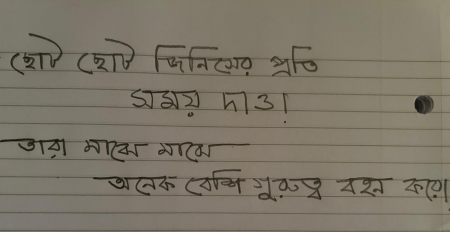 ছোট ছোট জিনিসের প্রতি
সময় দাও।
তারা মাঝে মাঝে
অনেক বেশি গুরুত্ব বহন করে।